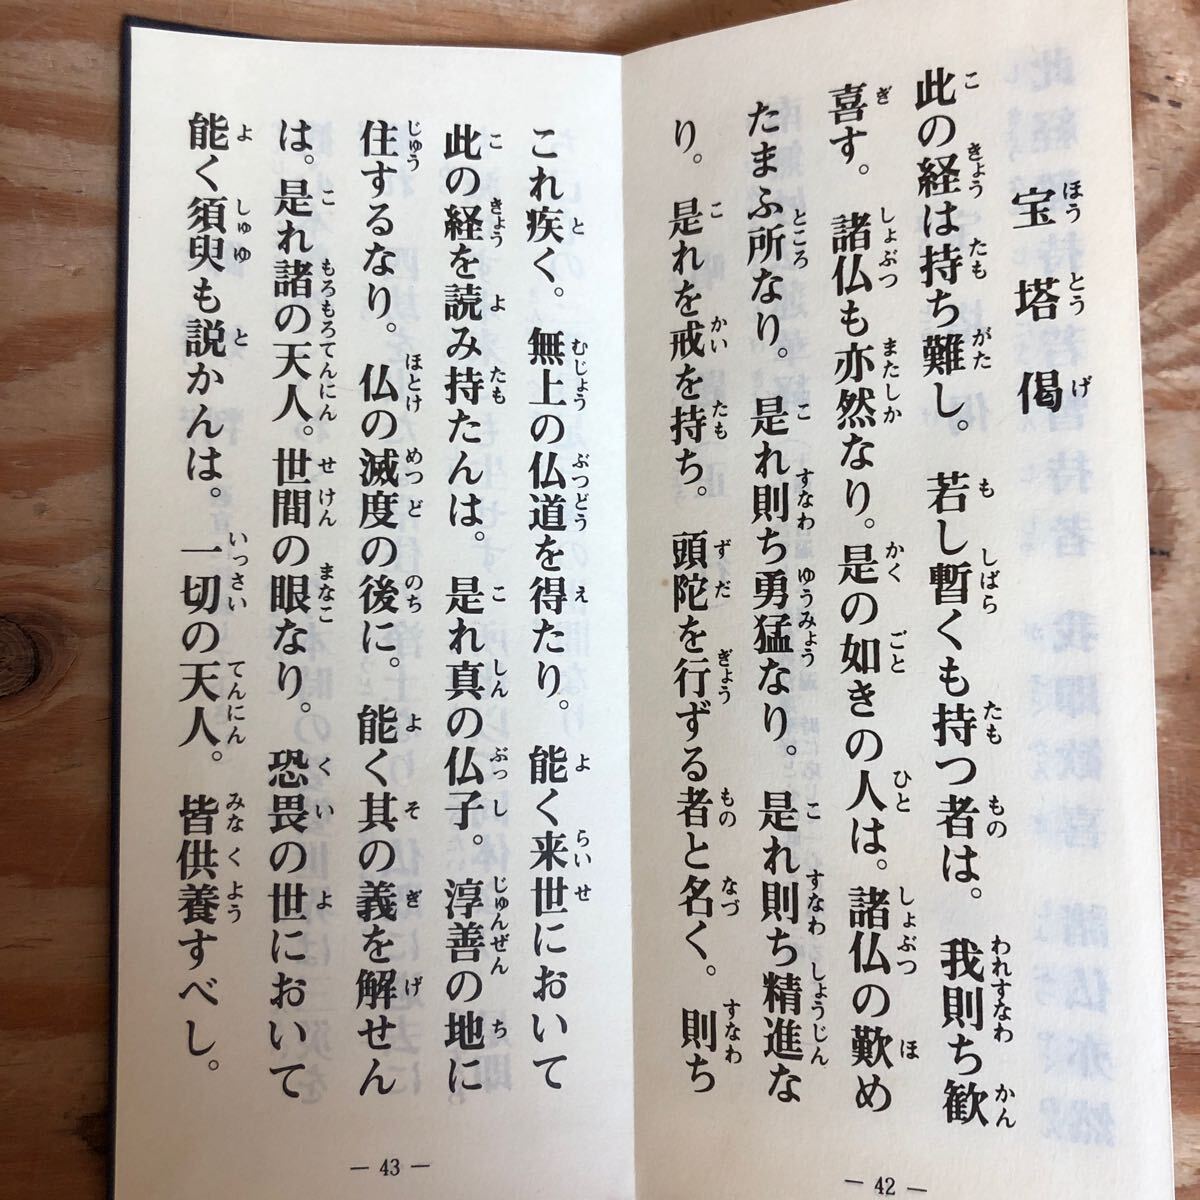 宝塔偈
此の経は持ち難し。若し暫くも持つ者は。我則ち歓
喜す。諸仏も亦然なり。是の如きの人は。諸仏の歎め
たまふ所なり。是れ則ち勇猛なり。是れ則ち精進な
り。是れを戒を持ち。頭陀を行ずる者と名く。則ち
― 42 ―
これ疾く。無上の仏道を得たり。能く来世において
此の経を読み持たんは。是れ真の仏子。淳善の地に
住するなり。仏の滅度の後に。能く其の義を解せん
は。是れ諸の天人。世間の眼なり。恐畏の世において
能く須臾も説かんは。一切の天人。皆供養すべし。
― 43 ―